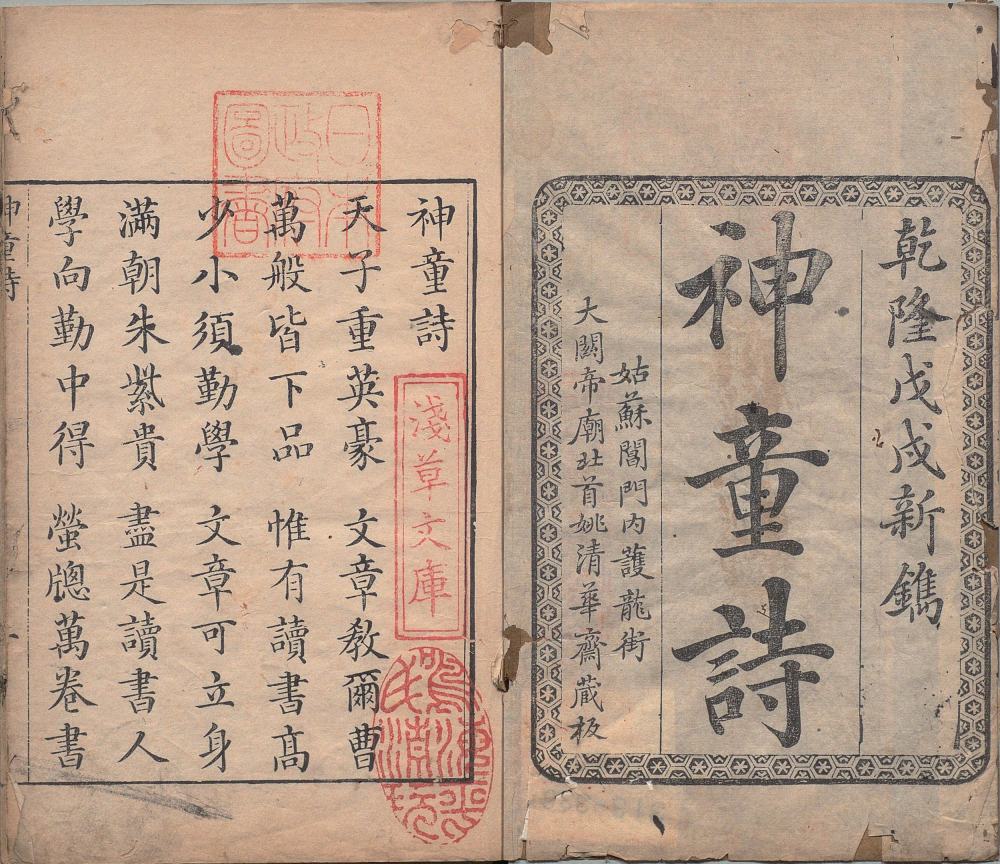 乾隆戊戌新鐫
神童詩
姑蘇閶門内護龍街
大關帝廟北首姚清華齋藏板
日本
政府
圖書
神童詩
天子重英豪　文章教爾曹
萬般皆下品　惟有讀書高
少小須勤學　文章可立身
滿朝朱紫貴　盡是讀書人
學向勤中得　螢牕萬卷書
淺草文庫
神童詩
一